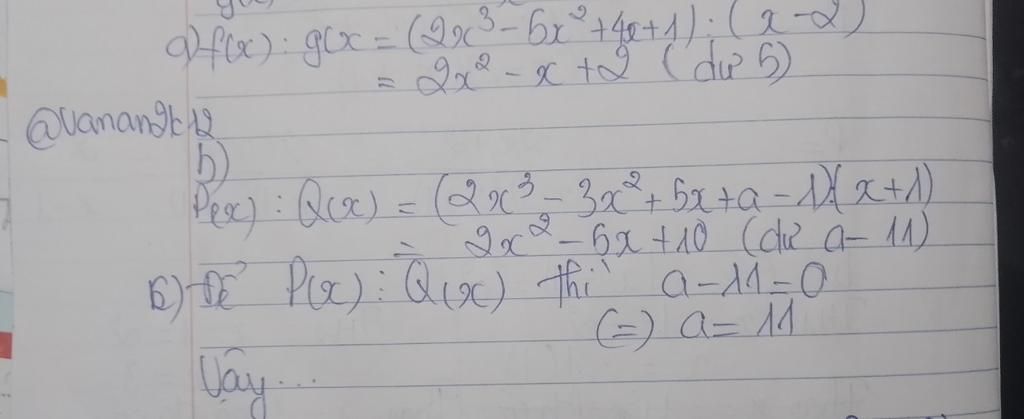 a) f(x) : g(x = (2x³ - 5x² + 4x + 1) : (x - 2)
= 2x² - x + 2 (dư 5)
@vanan2k12
b)
P(x) : Q(x) = (2x³ - 3x² + 5x + a - 1):(x + 1)
= 2x² - 5x + 10 (dư a - 11)
Để P(x) ⋮ Q(x) thì a - 11 = 0
(=) a = 11
Vậy...